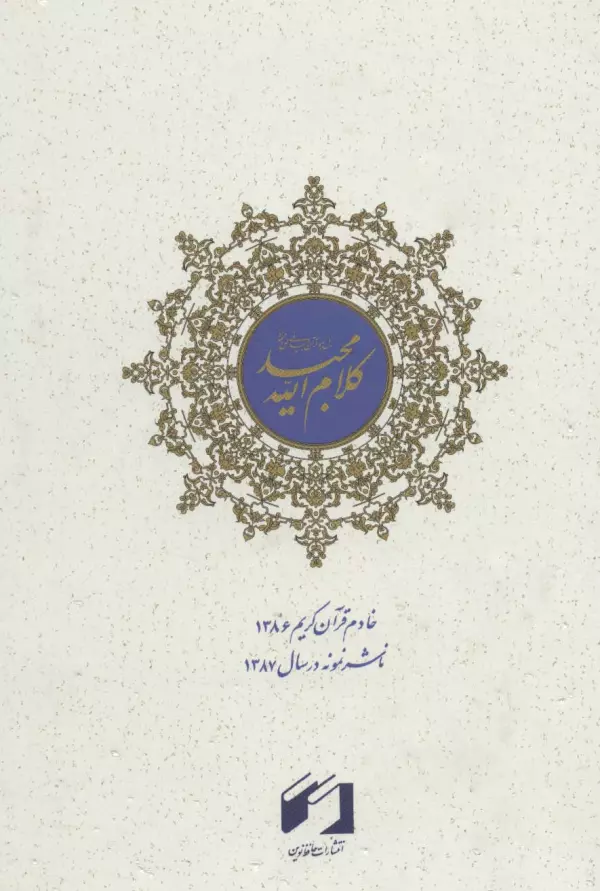 کلام الله مجید
خادم قرآن کریم ۱۳۸۶
ناشر نمونه در سال ۱۳۸۷
انتشارات حافظ نوین